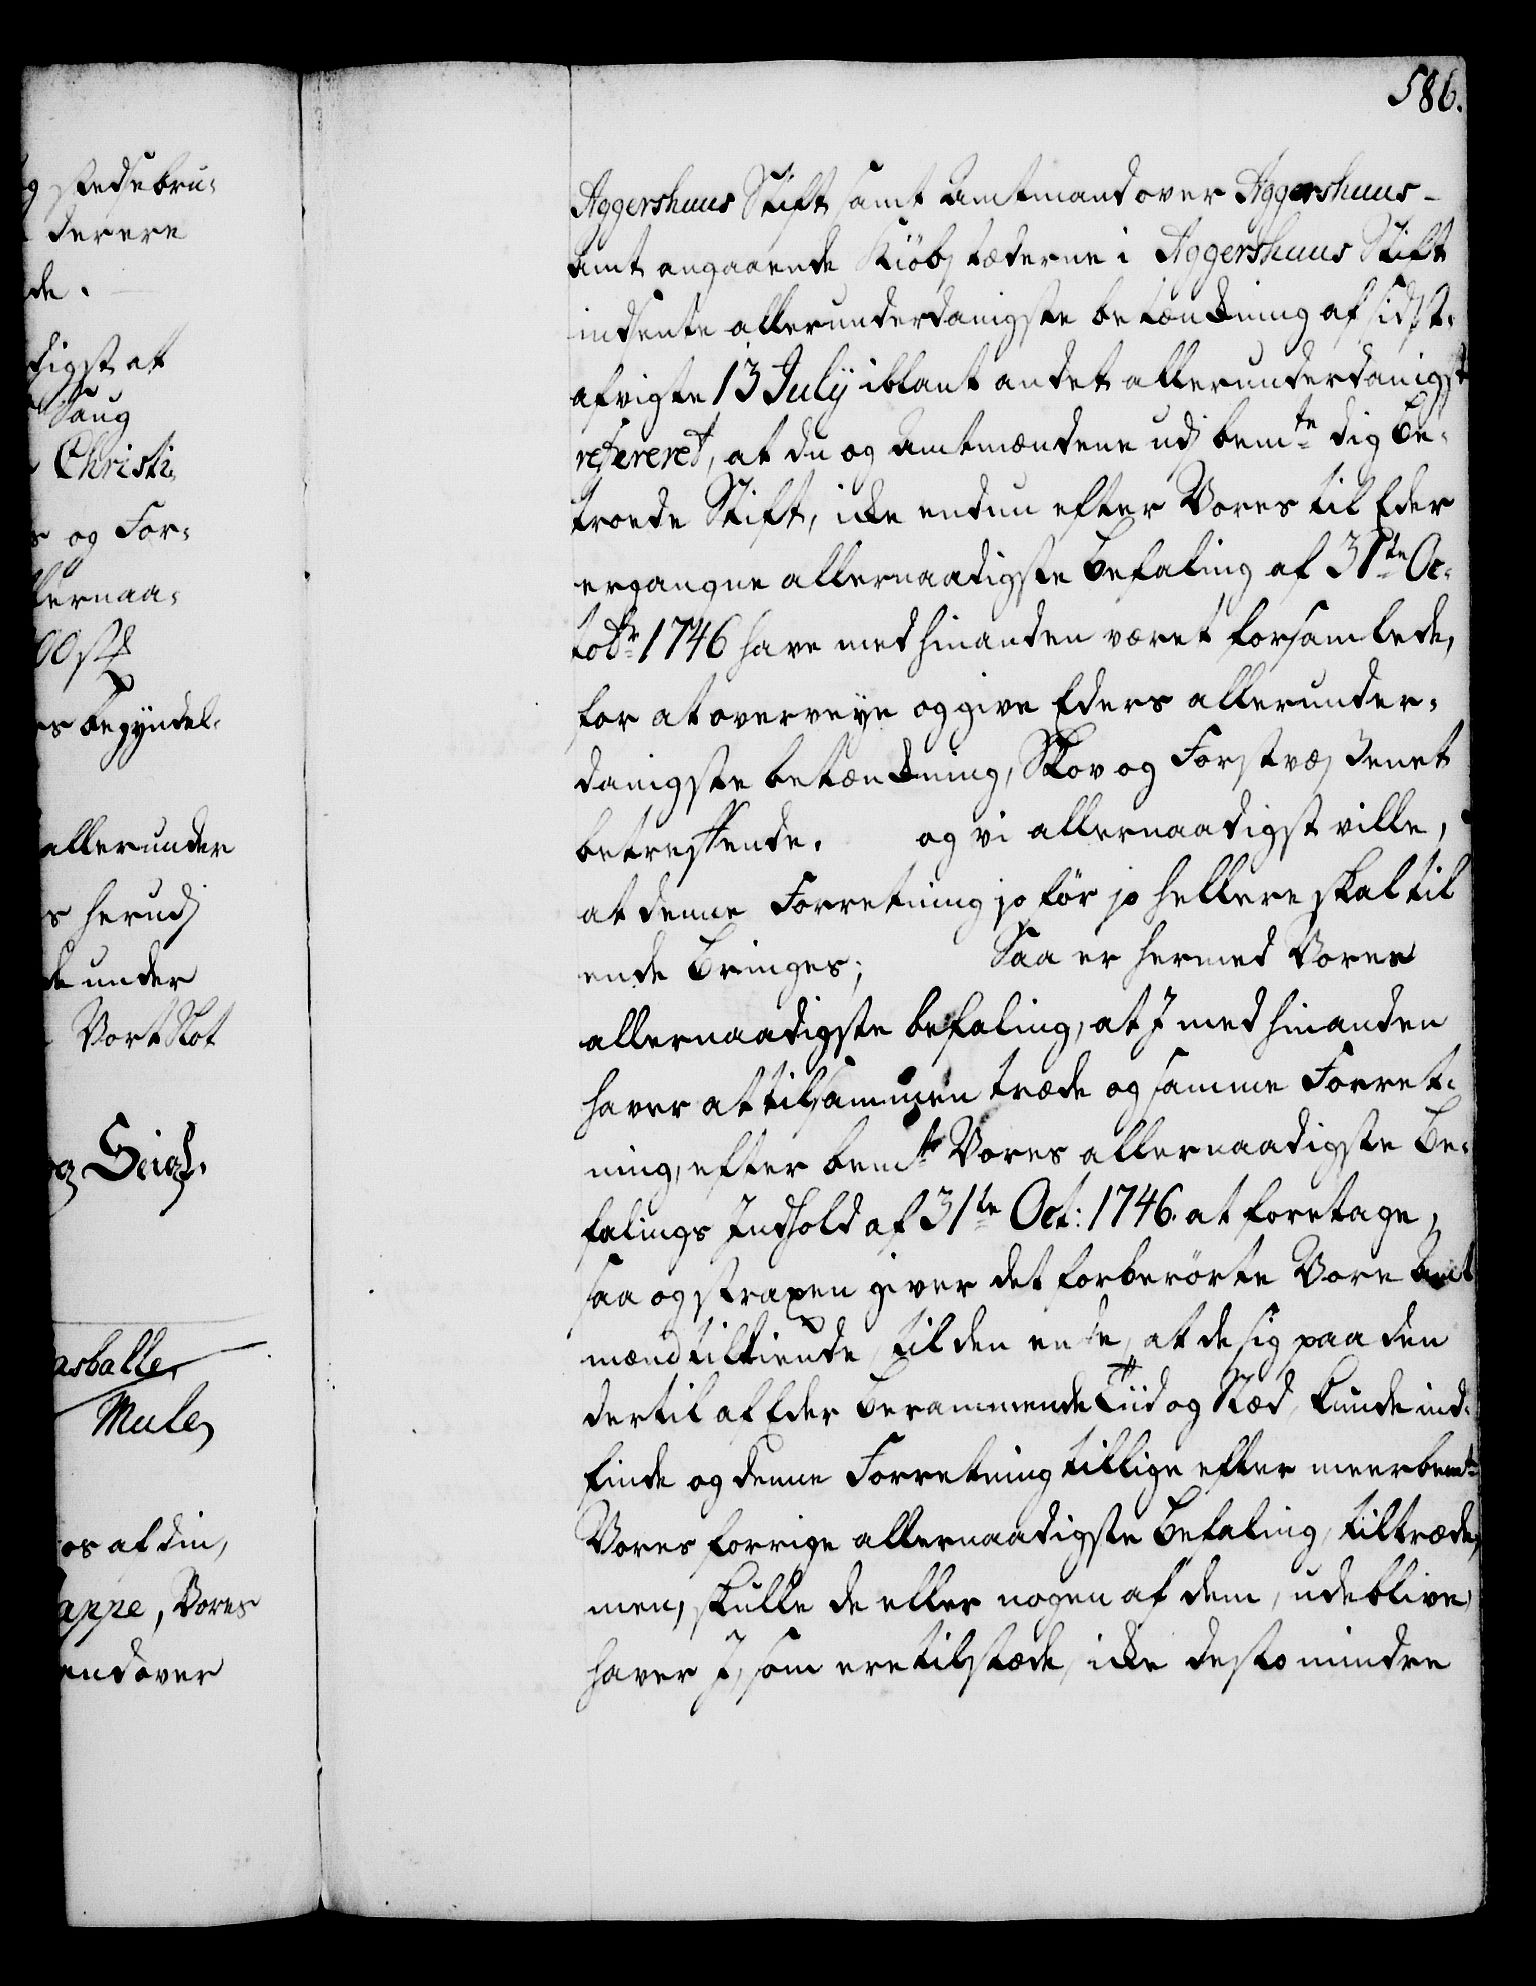 586.
g stedsebru¬
derere
de.
digst at
Saug
Christi¬
s og For¬
lernaa¬
es begyndel¬
allerunder
s herudj
de under
Vort Slot
og Seigl.
asballe,
Mule,
os af din,
appe, Vores
and over
Aggershuus Stift samt Amtmand over Aggershuus-
Amt angaaende Kiøbstæderne i Aggershuus Stift
indsente allerunderdanigste betænckning af sidst¬
afvigte 13 Julÿ iblant andet allerunderdanigst
refereret, at du og Amtmændene udj bemte dig be¬
troede Stift, icke endnu efter Vores til Eder
ergangne allernaadigste Befaling af 31te Oc¬
tobr 1746 have med hinanden været forsamlede,
for at overveÿe og give Eders allerunder¬
danigste betænckning, Skov og Forstvæsenet
betreffende. og vi allernaadigst ville,
at denne Forretning jo før jo hellere skal til
ende bringes; Saa er hermed Vores
allernaadigste befaling, at I med hinanden
haver at tilsammen træde og samme Forret¬
ning, efter bemte Vores allernaadigste Be¬
falings Indhold af 31te Oct: 1746. at foretage,
saa og straxen giver det forberørte Vore Amt
mænd tilkiende, til den ende, at de sig paa den
dertil af Eder berammende Tiid og Stæd, kunde ind¬
finde og denne Forretning tillige efter meerbemte
Vores forrige allernaadigste Befaling, tiltræde,
men, skulle de eller nogen af dem, udeblive,
haver I, som ere tilstæde, icke desto mindre